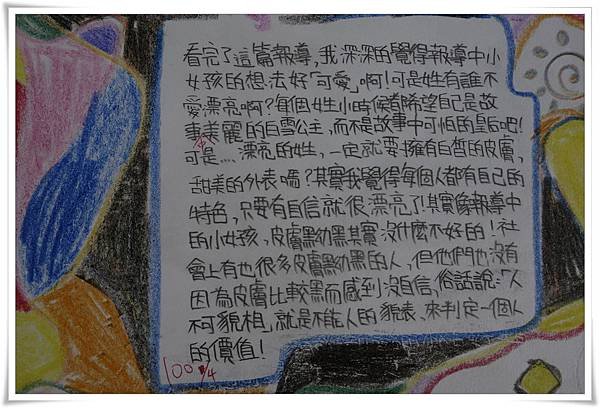 看完了這篇報導,我深深的覺得報導中小
女孩的想法好「可愛」啊!可是姓有誰不
愛漂亮啊?每個女生小時候都希望自己是故
事中美麗的白雪公主,而不是故事中可怕的皇后吧!
可是....漂亮的姓,一定就要擁有白皙的皮膚,
甜美的外表嗎?其實我覺得每個人都有自己的
特色,只要有自信就很漂亮了!其實像報導中
的小女孩,皮膚黝黑其實沒什麼不好的!社
會上有也很多皮膚黝黑的人,但他們也沒有
因為皮膚比較黑而感到沒自信,俗話說:「人
不可貌相,就是不能人的貌表,來判定一個人
的價值!
100 1/4